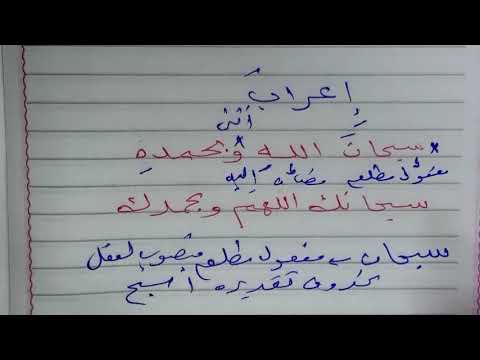 إعراب
أثنى
سبحان الله وبحمده
مفعول مطلق مضاف إليه
سبحانك اللهم وبحمدك
سبحان ← مفعول مطلق منصوب لفعل
محذوف تقديره أسبح